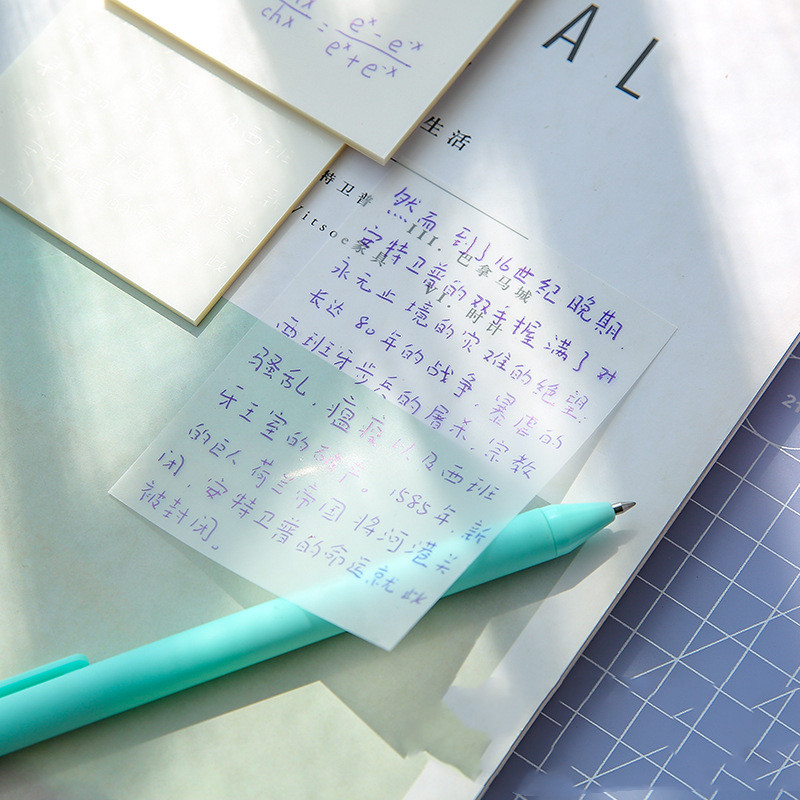 chx
= e^x - e^-x
e^x + e^-x
A L
生活
特卫普
Vitsoe家具
III. 巴拿马城
VI. 时计
然而到了16世纪晚期.
安特卫普的双手握满了对
永无止境的灾难的绝望:
长达80年的战争,暴虐的
西班牙步兵的屠杀,宗教
骚乱,瘟疫以及西班
牙王室的破产。1585年,新
的巨人荷兰帝国将河港关
闭,安特卫普的命运就此
被封闭。
21